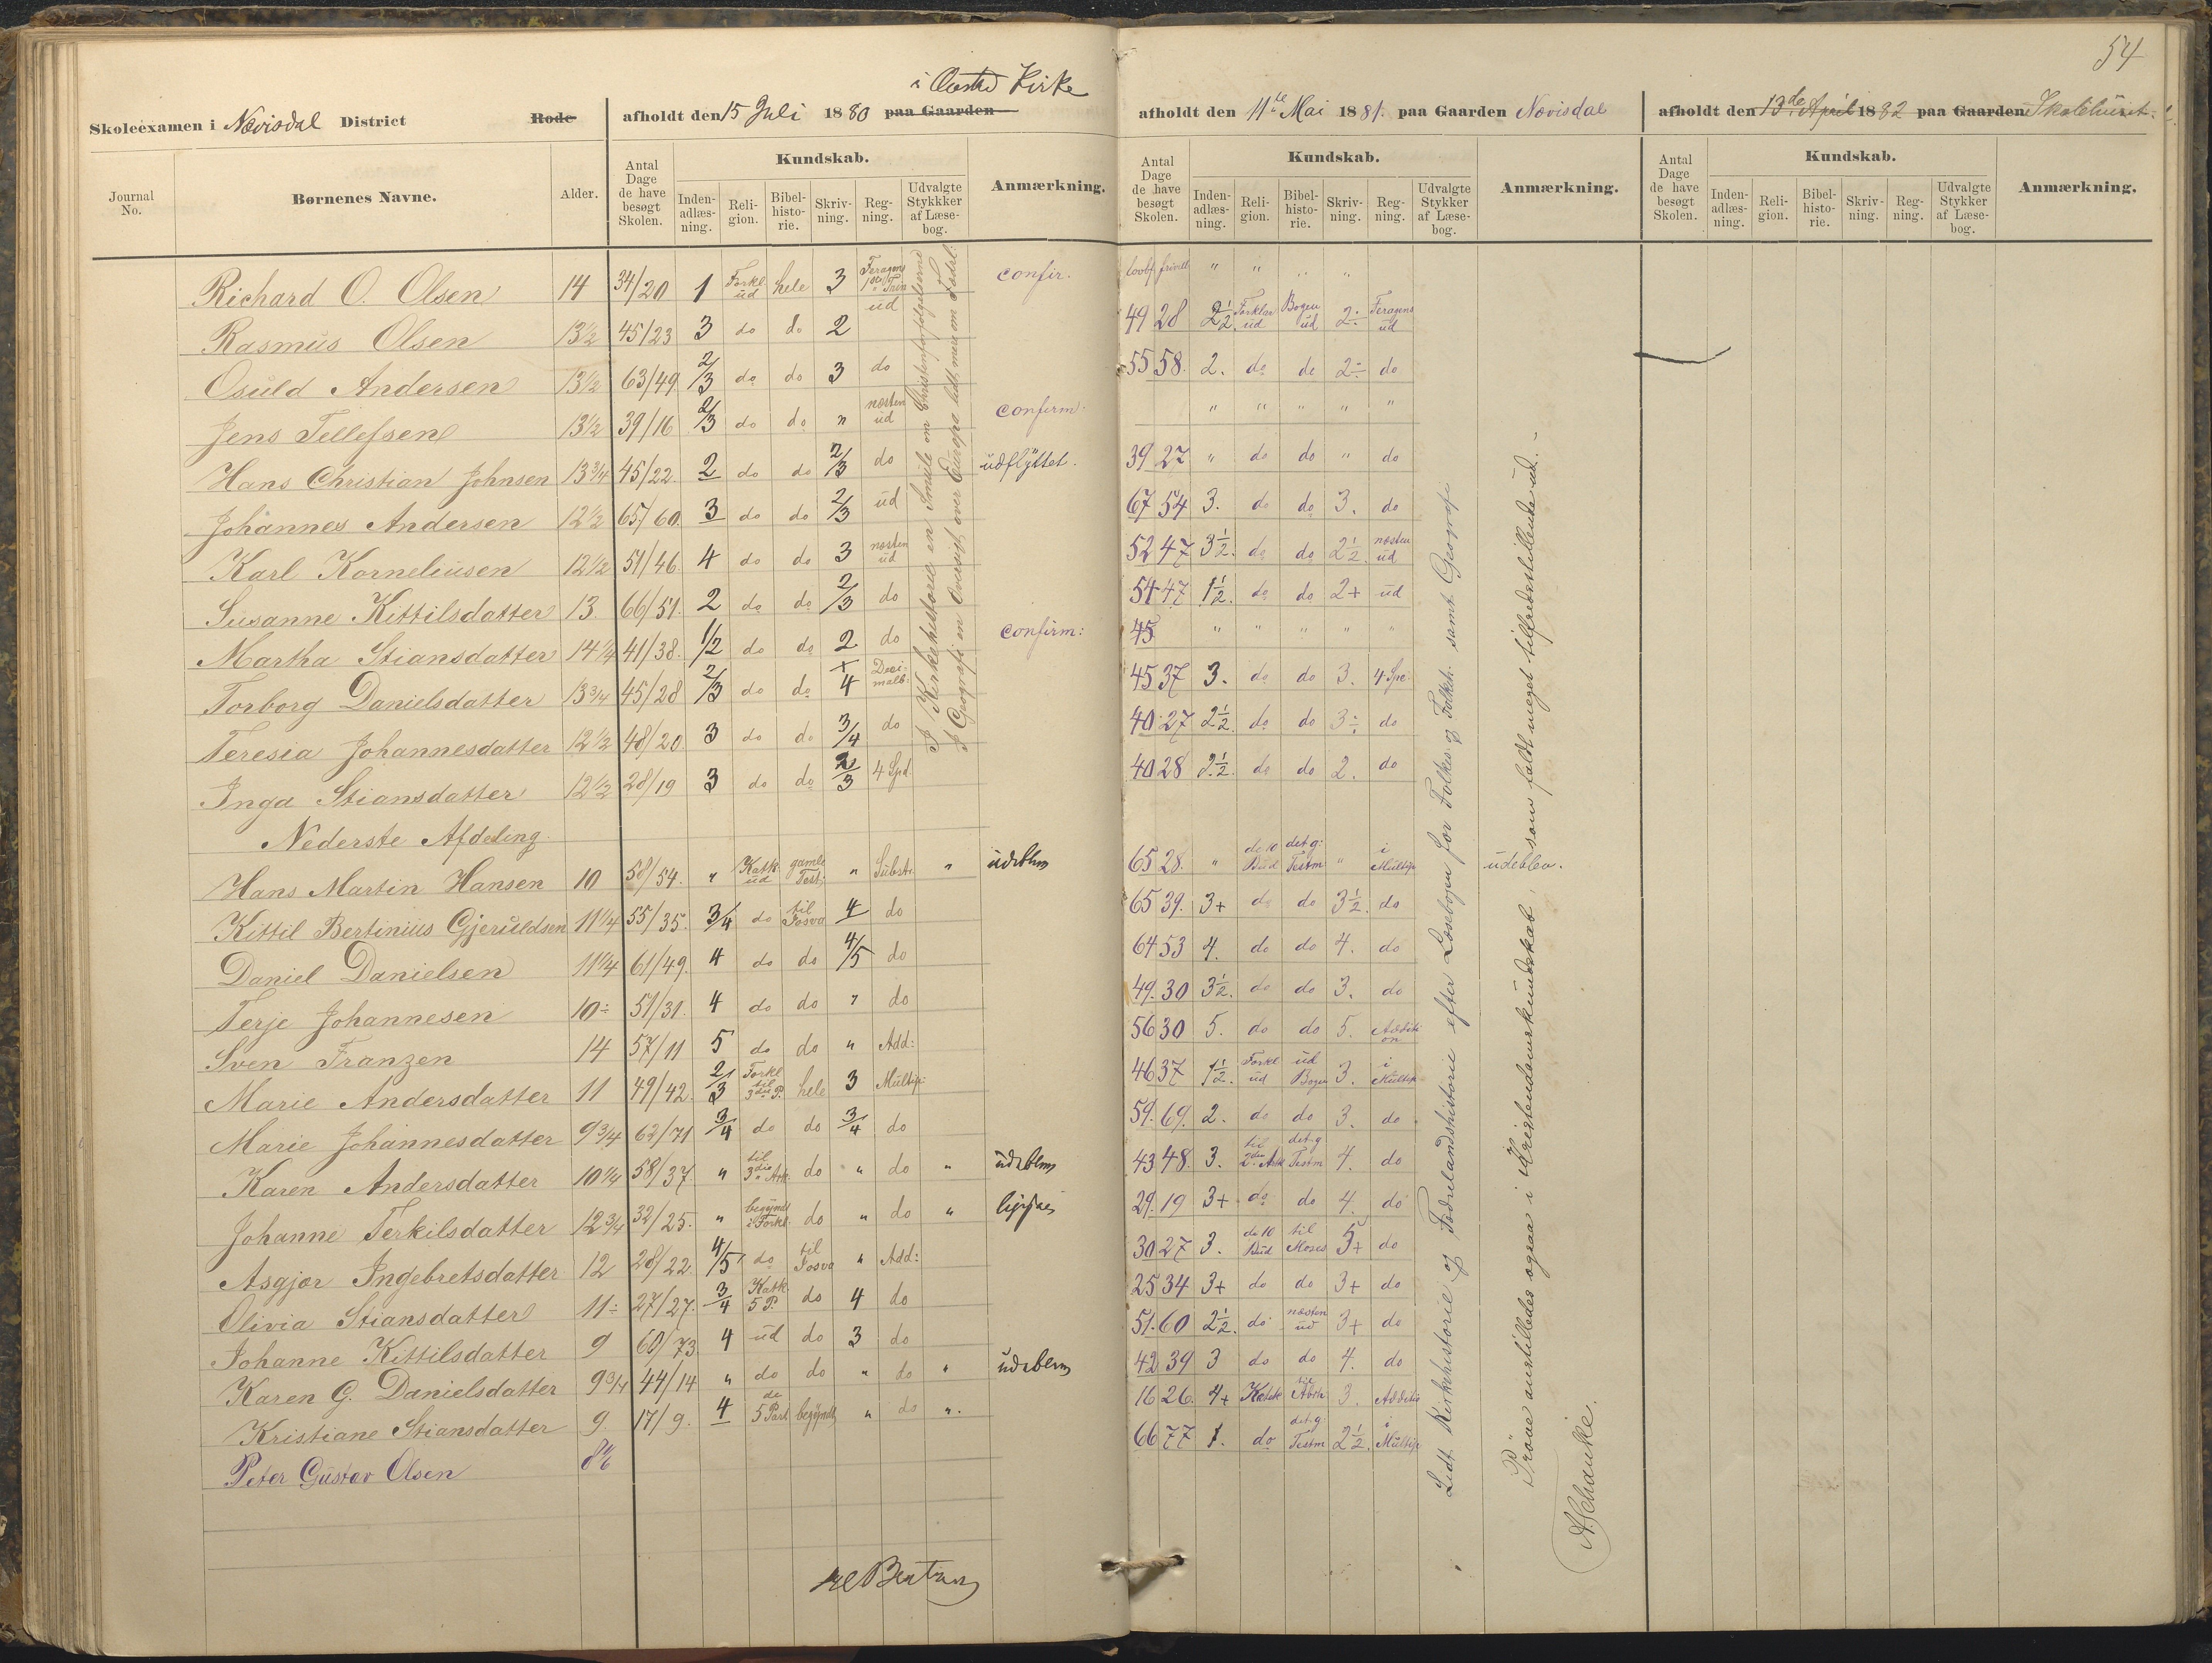 54
i Kirke
Skoleexamen i Nævisdal District Rode afholdt den 15 Juli 1880 paa Gaarden
afholdt den 11te Mai 1881. paa Gaarden Nævisdal
afholdt den 13de April 1882 paa Gaarden Skolehuset
Journal No. Børnenes Navne. Alder. Antal Dage de have besøgt Skolen. Kundskab. Inden-adlæs-ning. Reli-gion. Bibel-histo-rie. Skriv-ning. Reg-ning. Udvalgte Stykkker af Læse-bog. Anmærkning.
Antal Dage de have besøgt Skolen. Kundskab. Inden-adlæs-ning. Reli-gion. Bibel-histo-rie. Skriv-ning. Reg-ning. Udvalgte Stykker af Læse-bog. Anmærkning.
Antal Dage de have besøgt Skolen. Kundskab. Inden-adlæs-ning. Reli-gion. Bibel-histo-rie. Skriv-ning. Reg-ning. Udvalgte Stykker af Læse-bog. Anmærkning.
Richard O. Olsen 14 34/20 1 Forkl ud hele 3 confir. " " " "
Rasmus Olsen 13½ 45/23 3 do do 2 ud 49 28 2½ Forklar ud Bogen ud 2÷ Feragens ud
Osuld Andersen 13½ 63/49 2/3 do do 3 do 55 58. 2. do do 2÷ do
Jens Tellefsen 13½ 39/16 2/3 do do " næsten ud confirm: " " " " "
Hans Christian Johnsen 13¾ 45/22 2 do do 2/3 do udflyttet. 39 27 " do do " do
Johannes Andersen 12½ 65/60 3 do do 2/3 ud 67 54 3. do do 3. do
Karl Korneliusen 12½ 51/46 4 do do 3 næsten ud 52 47 3½. do do 2½. næsten ud
Susanne Kittilsdatter 13 66/51 2 do do 2/3 do 54 47 1½. do do 2+ ud
Martha Stiansdatter 14¼ 41/38 1/2 do do 2 do confirm: 45 " " " " "
Torborg Danielsdatter 13¾ 45/28 2/3 do do +4 Deci-malb: 45 37 3. do do 3. 4 Spe:
Teresia Johannesdatter 12½ 48/20 3 do do 3/4 do 40 27 2½ do do 3÷ do
Inga Stiansdatter 12½ 28/19 3 do do 2/3 4 Spd 40 28 2½. do do 2. do
Nederste Afdeling
Hans Martin Hansen 10 58/54. " Katk ud gamle Test: " Substr " udeblev 65 28. " de 10 Bud det g: Testm " i Multip udeblev.
Kittil Bertinius Gjeruldsen 11¼ 55/35. 3/4 do til Josva 4 do 65 39. 3+ do do 3½. do
Daniel Danielsen 11¼ 61/49. 4 do do 4/5 do 64 53 4. do do 4. do
Terje Johannesen 10÷ 51/31. 4 do do " do 49. 30 3½. do do 3. do
Sven Franzen 14 57/11 5 do do " Add: 56 30 5. do do 5. Addition
Marie Andersdatter 11 49/42. 2/3 Forkl til 3die P. hele 3 Multip: 46 37 1½. Forkl ud ud Bogen 3. i Multip
Marie Johannesdatter 9¾ 62/71 3/4 do do 3/4 do 59. 69. 2. do do 3. do
Karen Andersdatter 10¼ 58/37. " til 3die Art. do " do " udeblev 43 48. 3. til 2den Artk det g Testm 4. do
Johanne Terkilsdatter 12¾ 32/25. " begyndt i Forkl do " do " 29. 19 3+ do do 4. do
Asgjør Ingebretsdatter 12 28/22 4/5 do til Josva " Add: 30 27 3. de 10 Bud til Moses 5+ do
Olivia Stiansdatter 11÷ 27/27. 3/4 Katk 5 P. do 4 do 25 34 3+ do do 3+ do
Johanne Kittilsdatter 9 60/73 4 ud do 3 do 51. 60 2½. do næsten ud 3+ do
Karen G. Danielsdatter 9¾ 44/14 " do do " do " udeblev 42 39 3 do do 4. do
Kristiane Stiansdatter 9 17/9. 4 de 5 Part begyndt " do ". 16 26. 4+ Katek til 3. Additio
Peter Gustav Olsen 66 77 1. do det g Testm 2½. i Multip
I Kirkehistorie en Smule om Christenforfølgelserne
I Geografi en Oversigt over Europa lidt mere om Fædrl:
Lidt Kirkehistorie og Fædrelandshistorie efter Læsebogen for Folkes. og Folkeh. samt Geografi
Prøve anstilledes ogsaa i Kristendomskundskab, som faldt meget tilfredsstillende ud.
A. Schanke.